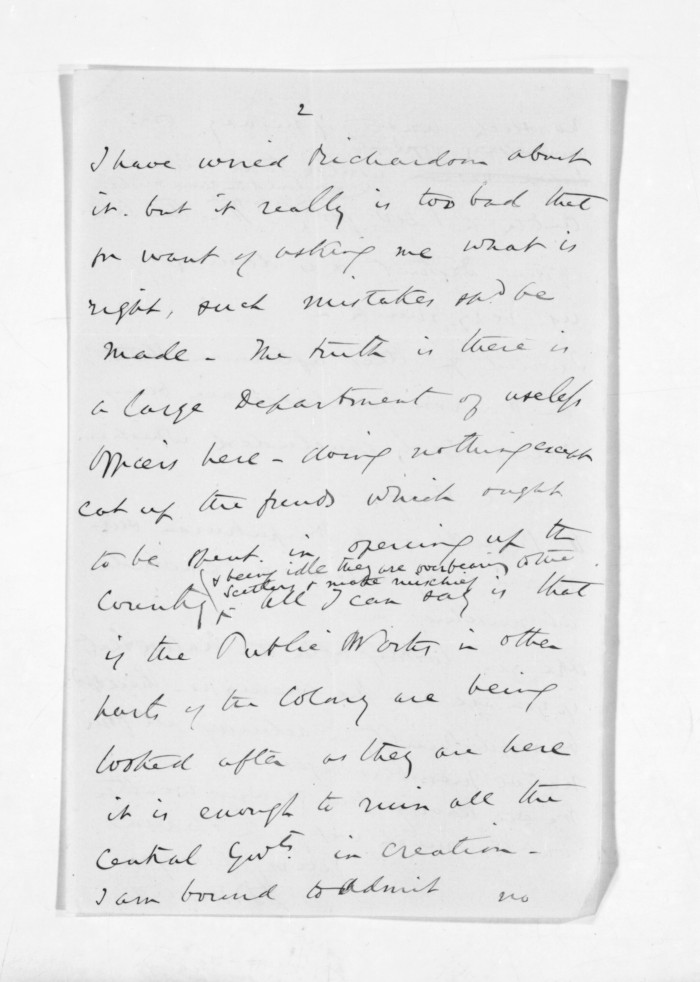 2
I have wired Richardson about
it. but it really is too bad that
for want of asking me what is
right, such mistakes shd be
made - The truth is there is
a large Department of useless
Officers here - doing nothing except
eat up the funds which ought
to be spent in opening up the
& being idle they are overbearing to the
settlers & make mischief
Country - all I can say is that
if the Public Works in other
parts of the Colony are being
looked after as they are here
it is enough to ruin all the
Central Govts. in creation -
I am bound to admit no